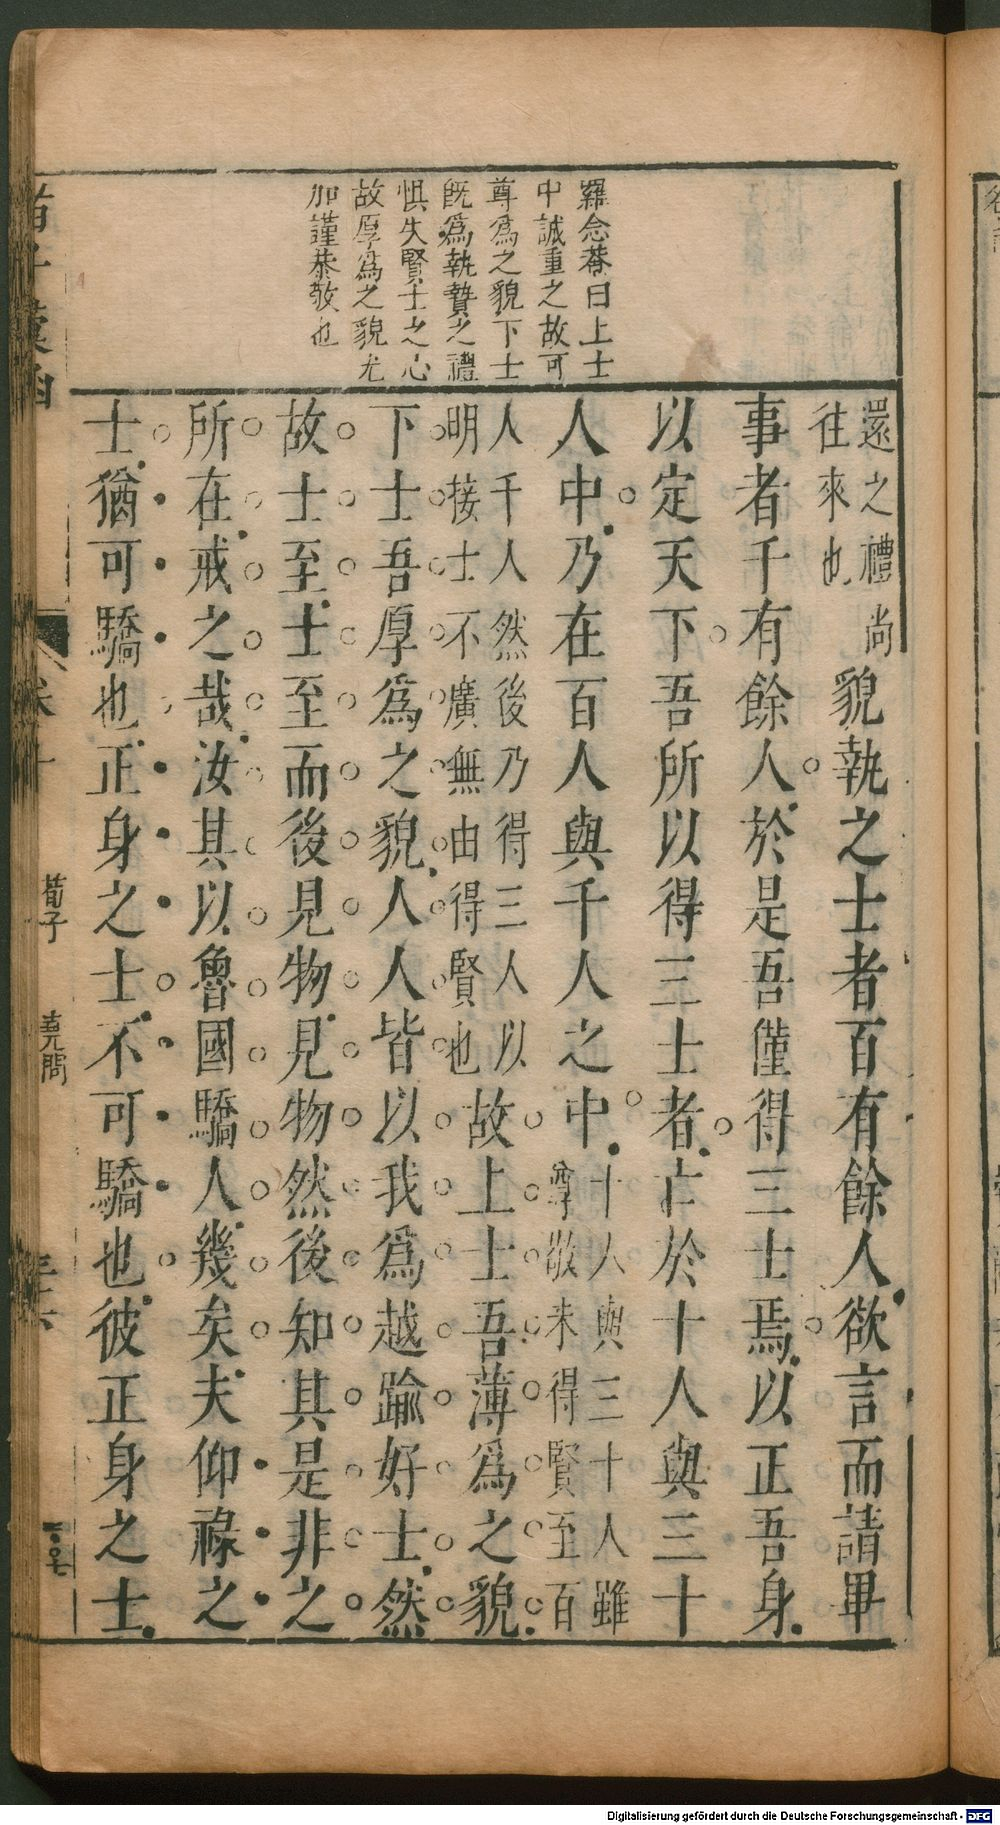 羅念菴曰上士
中誠重之故可
尊爲之貌下士
既爲執贄之禮
惧失賢士之心
故厚爲之貌尤
加謹恭敬也
還之禮尚
往來也
貌執之士者百有餘人欲言而請畢
事者千有餘人於是吾僅得三士焉以正吾身
以定天下吾所以得三士者亡於十人與三十
人中乃在百人與千人之中
十人與三十人雖
尊敬未得賢至百
人千人然後乃得三人以
明接士不廣無由得賢也
故上士吾薄爲之貌
下士吾厚爲之貌人人皆以我爲越踰好士然
故士至士至而後見物見物然後知其是非之
所在戒之哉汝其以魯國驕人幾矣夫仰祿之
士猶可驕也正身之士不可驕也彼正身之士
卷十
荀子
堯問
Digitalisierung gefördert durch die Deutsche Forschungsgemeinschaft - DFG